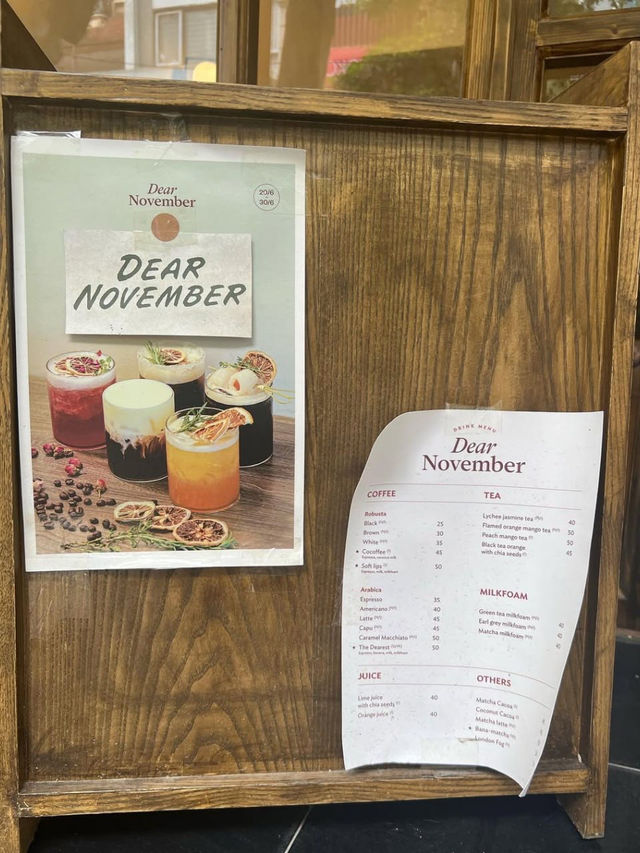 Dear
November
20/6
30/6
DEAR
NOVEMBER
DRINK MENU
Dear
November
COFFEE
Robusta
Black (H/I) 25
Brown (H/I) 30
White (H/I) 35
Cocoffee (I) 45
Espresso, coconut milk
Soft lips (I) 50
Espresso, milk, milkfoam
Arabica
Espresso 35
Americano (H/I) 40
Latte (H/I) 45
Capu (H/I) 45
Caramel Macchiato (H/I) 50
The Dearest 50
JUICE
Lime juice
with chia seeds (I) 40
Orange juice (I) 40
TEA
Lychee jasmine tea (H/I) 40
Flamed orange mango tea (H/I) 50
Peach mango tea (I) 50
Black tea orange
with chia seeds (I) 45
MILKFOAM
Green tea milkfoam (H/I) 40
Earl grey milkfoam (H/I) 40
Matcha milkfoam (H/I) 40
OTHERS
Matcha Cacoa (I)
Coconut Cacoa (I)
Matcha latte (H/I)
Bana-matcha (H/I)
London Fog (H)